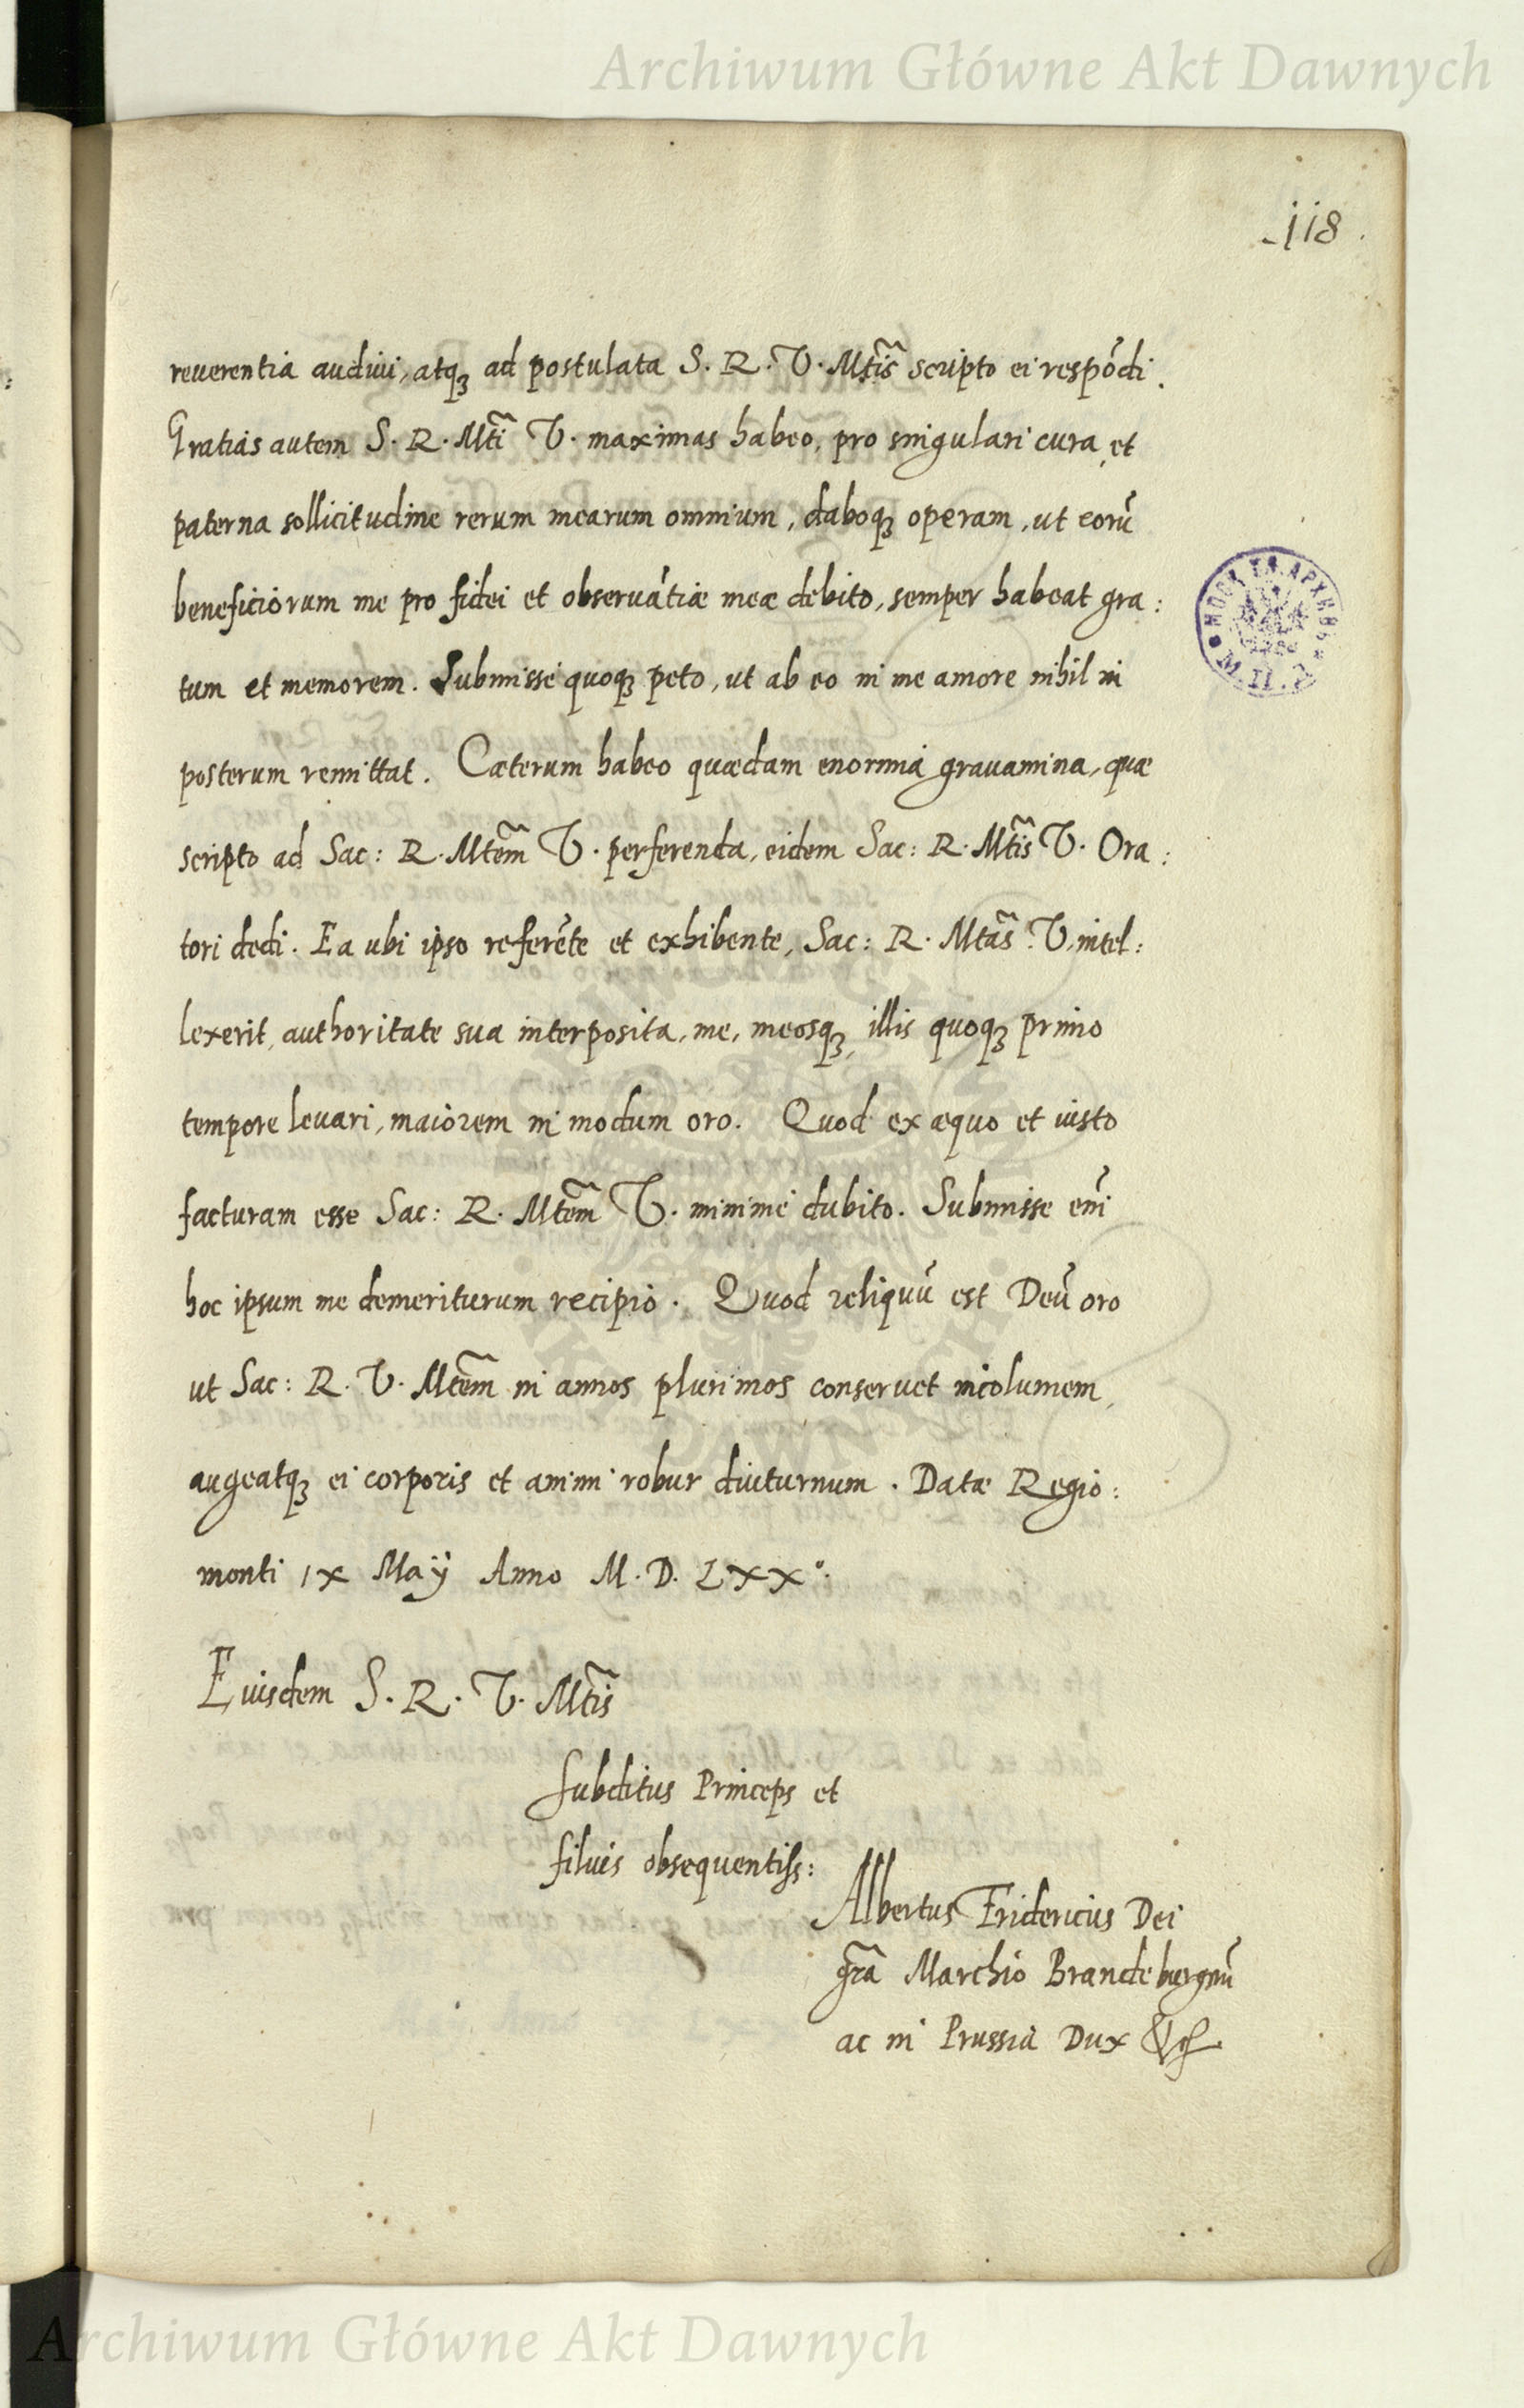 Archiwum Główne Akt Dawnych
118.
reuerentia audiui, atqꝫ ad postulata S. R. V. Mtĩs scripto ei respõdi.
Gratias autem S. R. Mtĩ V. maximas habeo, pro singulari cura, et
paterna sollicitudine rerum mearum omnium, daboqꝫ operam, ut eorũ
beneficiorum me pro fidei et obseruãtiæ meæ debito, semper habeat gra:
tum et memorem. Submisse quoqꝫ peto, ut ab eo in me amore nihil in
posterum remittat. Cæterum habeo quædam enormia grauamina, quæ
scripto ad Sac: R. Mtẽm V. perferenda, eidem Sac: R. Mtĩs V. Ora:
tori dedi. Ea ubi ipso referẽte et exhibente, Sac: R. Mtãs V. intel:
lexerit, authoritate sua interposita, me, meosqꝫ, illis quoqꝫ primo
tempore leuari, maiorem in modum oro. Quod ex æquo et iusto
facturam esse Sac: R. Mtẽm V. minime dubito. Submisse em̃
hoc ipsum me demeriturum recipio. Quod reliquũ est Deũ oro
ut Sac: R. V. Mtẽm in annos plurimos conseruet incolumem,
augeatqꝫ ei corporis et animi robur diuturnum. Datæ Regio:
monti IX Maÿ Anno M. D. LXX°.
Eiusdem S. R. V. Mtĩs
Subditus Princeps et
filius obsequentiss:
Albertus Fridericus Dei
grã Marchio Brandeburgeñ
ac in Prussia Dux &c
Archiwum Główne Akt Dawnych